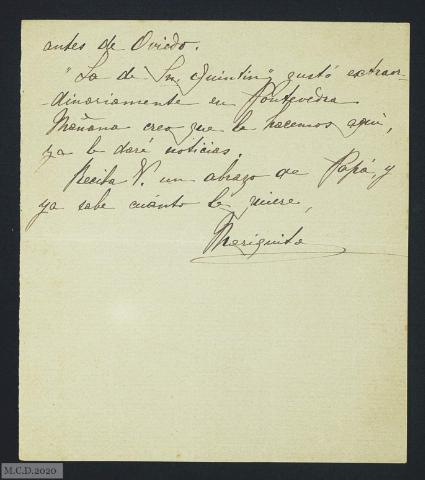 antes de Oviedo.
"La de Sn. Quintin" gustó extraor-
-dinariamente en Pontevedra
Mañana creo que la hacemos aquí,
ya le daré noticias.
Reciba V. un abrazo de Papá, y
ya sabe cuánto le quiere,
Mariquita
M.C.D.2020